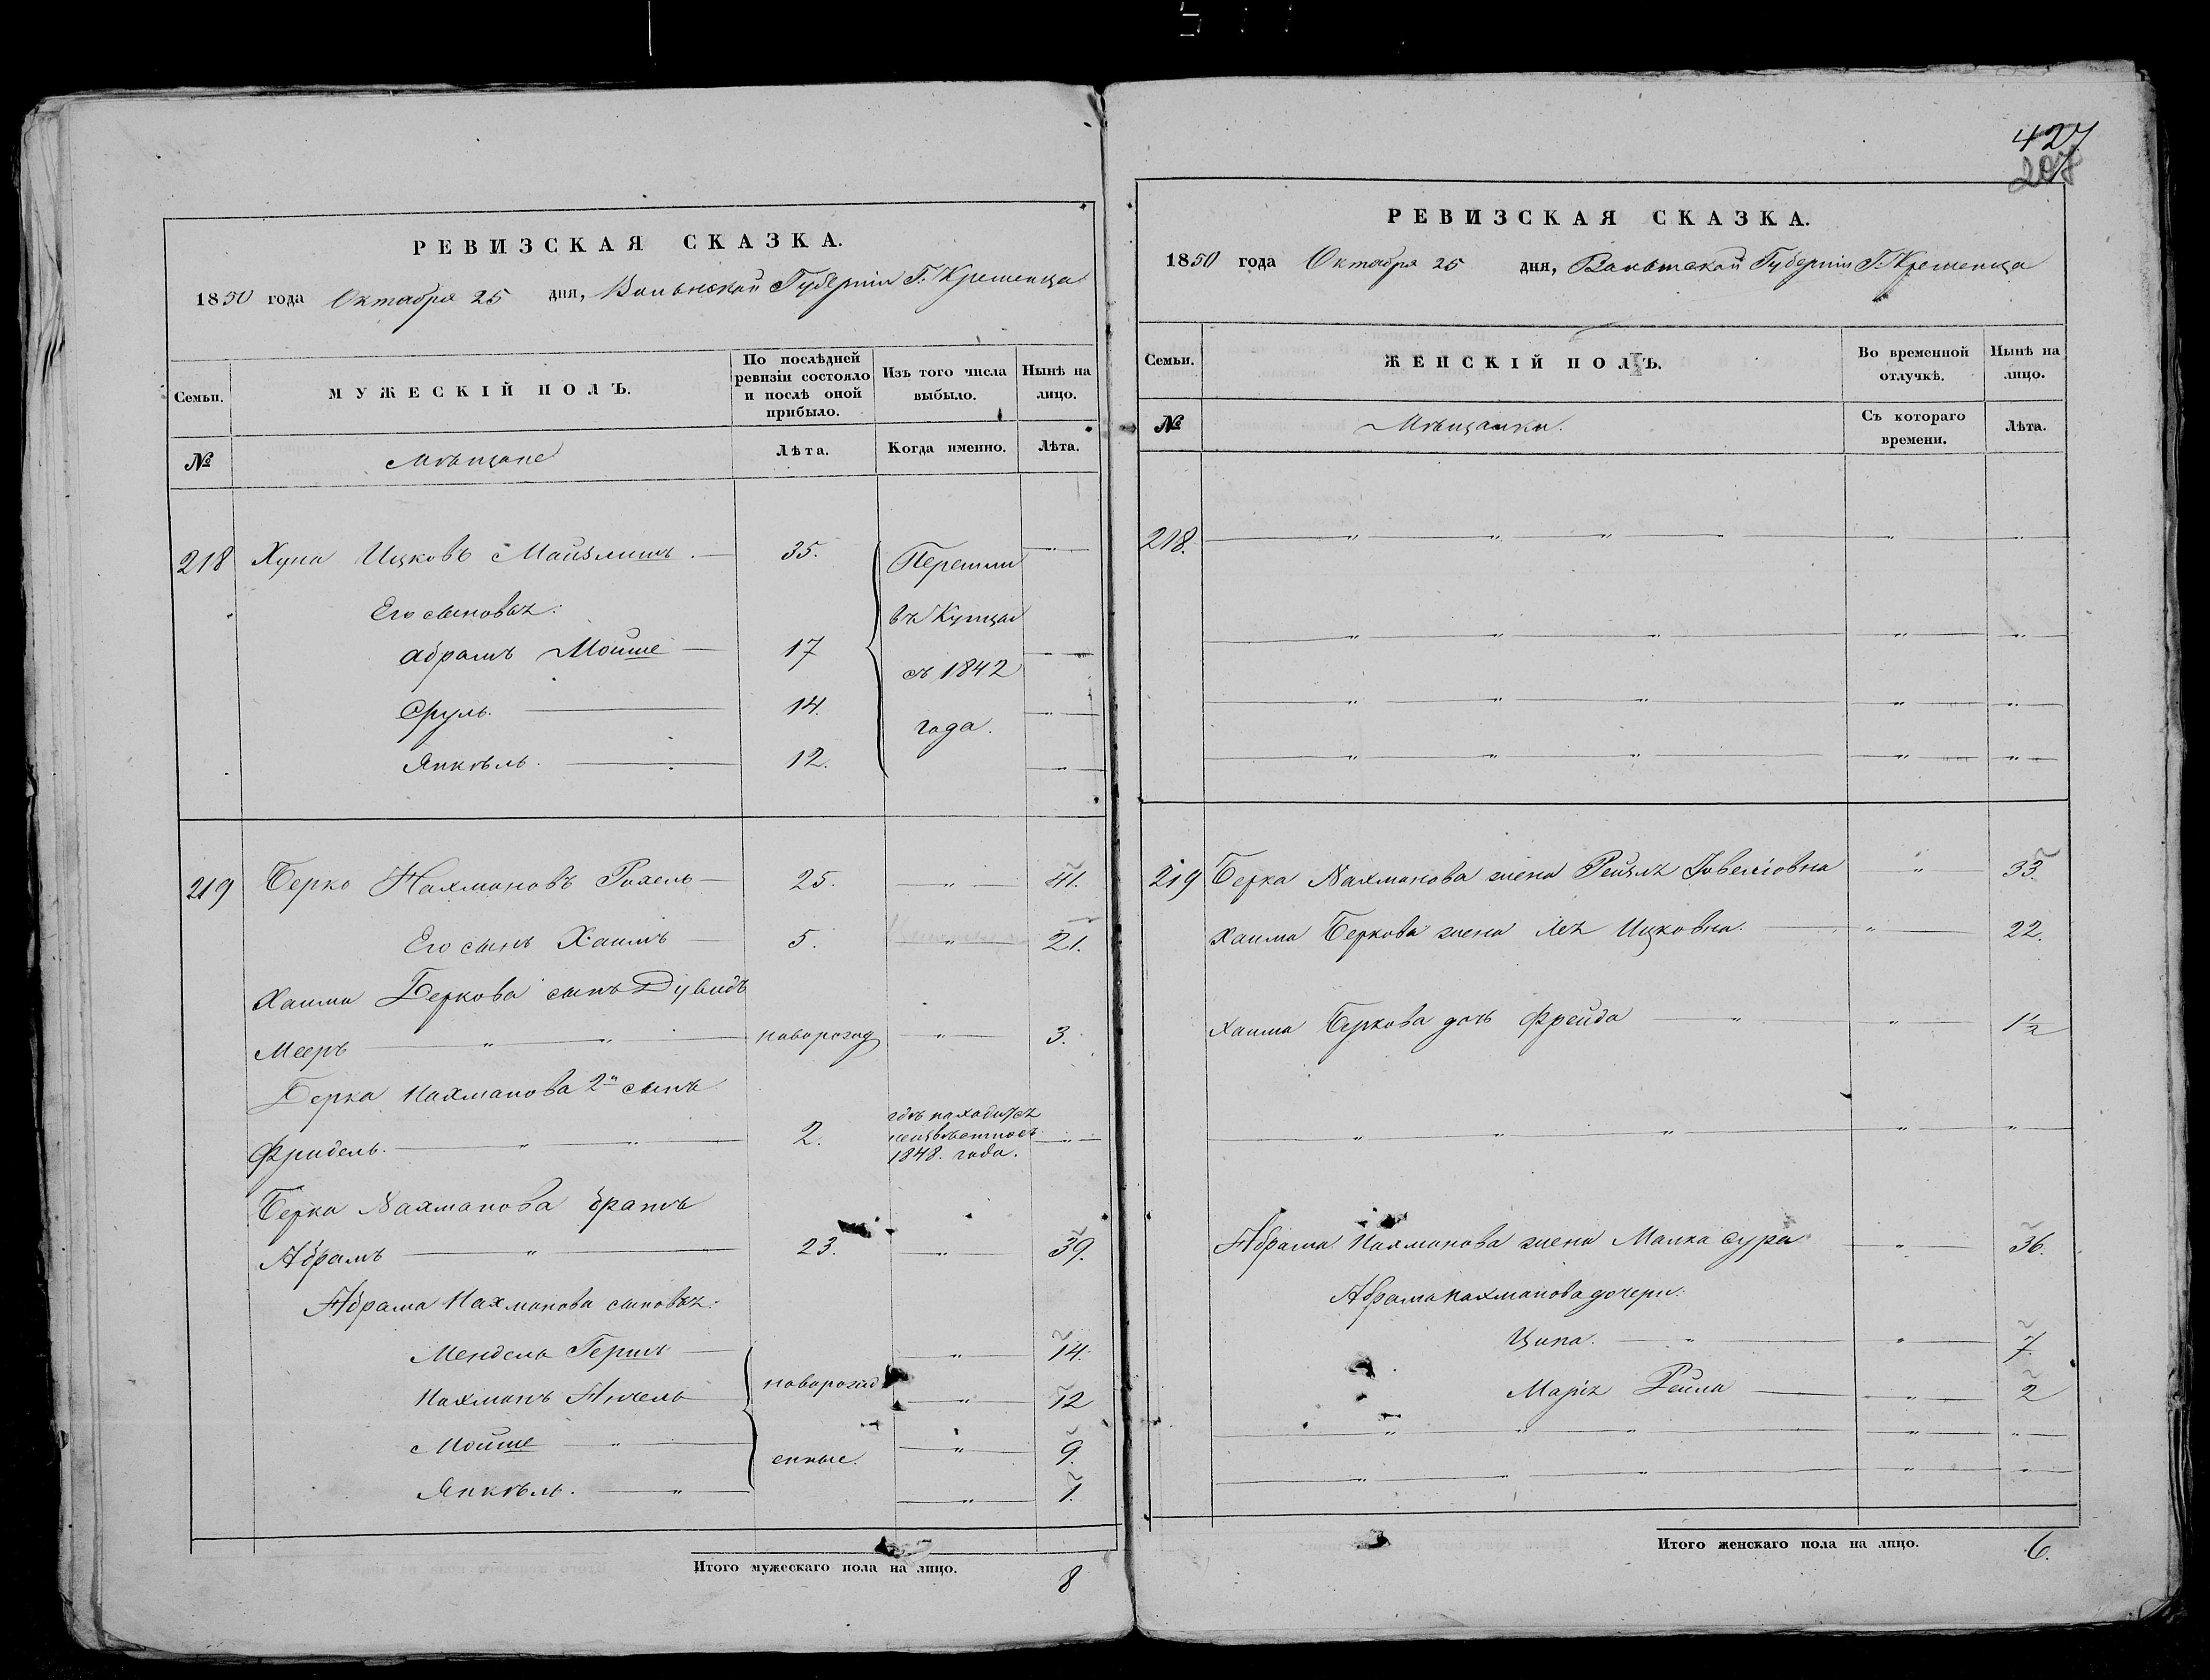 РЕВИЗСКАЯ СКАЗКА.
1850 года Октября 25 дня, Волынской Губерніи Г. Кременца
Семьи.
МУЖЕСКІЙ ПОЛЪ.
По послѣдней ревизіи состояло и послѣ оной прибыло.
Изъ того числа выбыло.
Нынѣ на лицо.
№
Мѣщане
Лѣта.
Когда именно.
Лѣта.
218 Хуна Ицковъ Майзлишъ. 35. Перешли
Его сыновья: въ Купцы
Абрамъ Мойше 17 съ 1842
Сруль. 14. года.
Янкѣль. 12.
219 Берко Нахмановъ Рохель 25. " 41.
Его сынъ Хаимъ 5. " 21.
Хаима Беркова сынъ Дувидъ
Мееръ " " новорожд " 3.
Берка Нахманова 2й сынъ
Фридель. " " 2. гдѣ находится
неизвѣстно съ
1848. года.
Берка Нахманова братъ
Абрамъ " 23. " 39.
Абрама Нахманова сыновья:
Мендель Гершъ " 14.
Нахманъ новорожд " 12
Мойше " " 9.
Янкѣль. " енные. " 1.
Итого мужескаго пола на лицо. 8
427
207
РЕВИЗСКАЯ СКАЗКА.
1850 года Октября 25 дня, Волынской Губерніи Г. Кременца
Семьи.
ЖЕНСКІЙ ПОЛЪ.
Во временной отлучкѣ.
Нынѣ на лицо.
№
Мѣщанки.
Съ котораго времени.
Лѣта.
218. " " " " " "
" " " " "
" " " " "
" " " " "
219 Берка Нахманова жена Рейзля " 33.
Хаима Беркова жена Лея Ицковна. " 22.
Хаима Беркова дочь Фрейда " " 1½
" " " " "
Абрама Нахманова жена Малка Сура " 36.
Абрама Нахманова дочери:
Ципа. " " 7.
Марія Рейла " 2
" " " " "
" " " " "
Итого женскаго пола на лицо. 6.